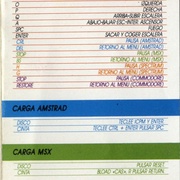 O IZQUIERDA
P DERECHA
Q ARRIBA-SUBIR ESCALERA
A ABAJO-BAJAR ESC-ENTER ASCENSOR
SPC FUEGO
ENTER SACAR Y COGER ESCALERA
CTRL PAUSA (AMSTRAD)
DEL RETORNO AL MENU (AMSTRAD)
STOP PAUSA (MSX)
RETORNO AL MENU (MSX)
PAUSA (SPECTRUM)
RETORNO AL MENU (SPECTRUM)
STOP PAUSA (COMMODORE)
RETORNO AL MENU (COMMODORE)
CARGA AMSTRAD
DISCO TECLEE |CPM Y ENTER
CINTA TECLEE CTRL + ENTER PULSAR SPC.
CARGA MSX
DISCO PULSAR RESET.
CINTA BLOAD «CAS:», R PULSAR RETURN.